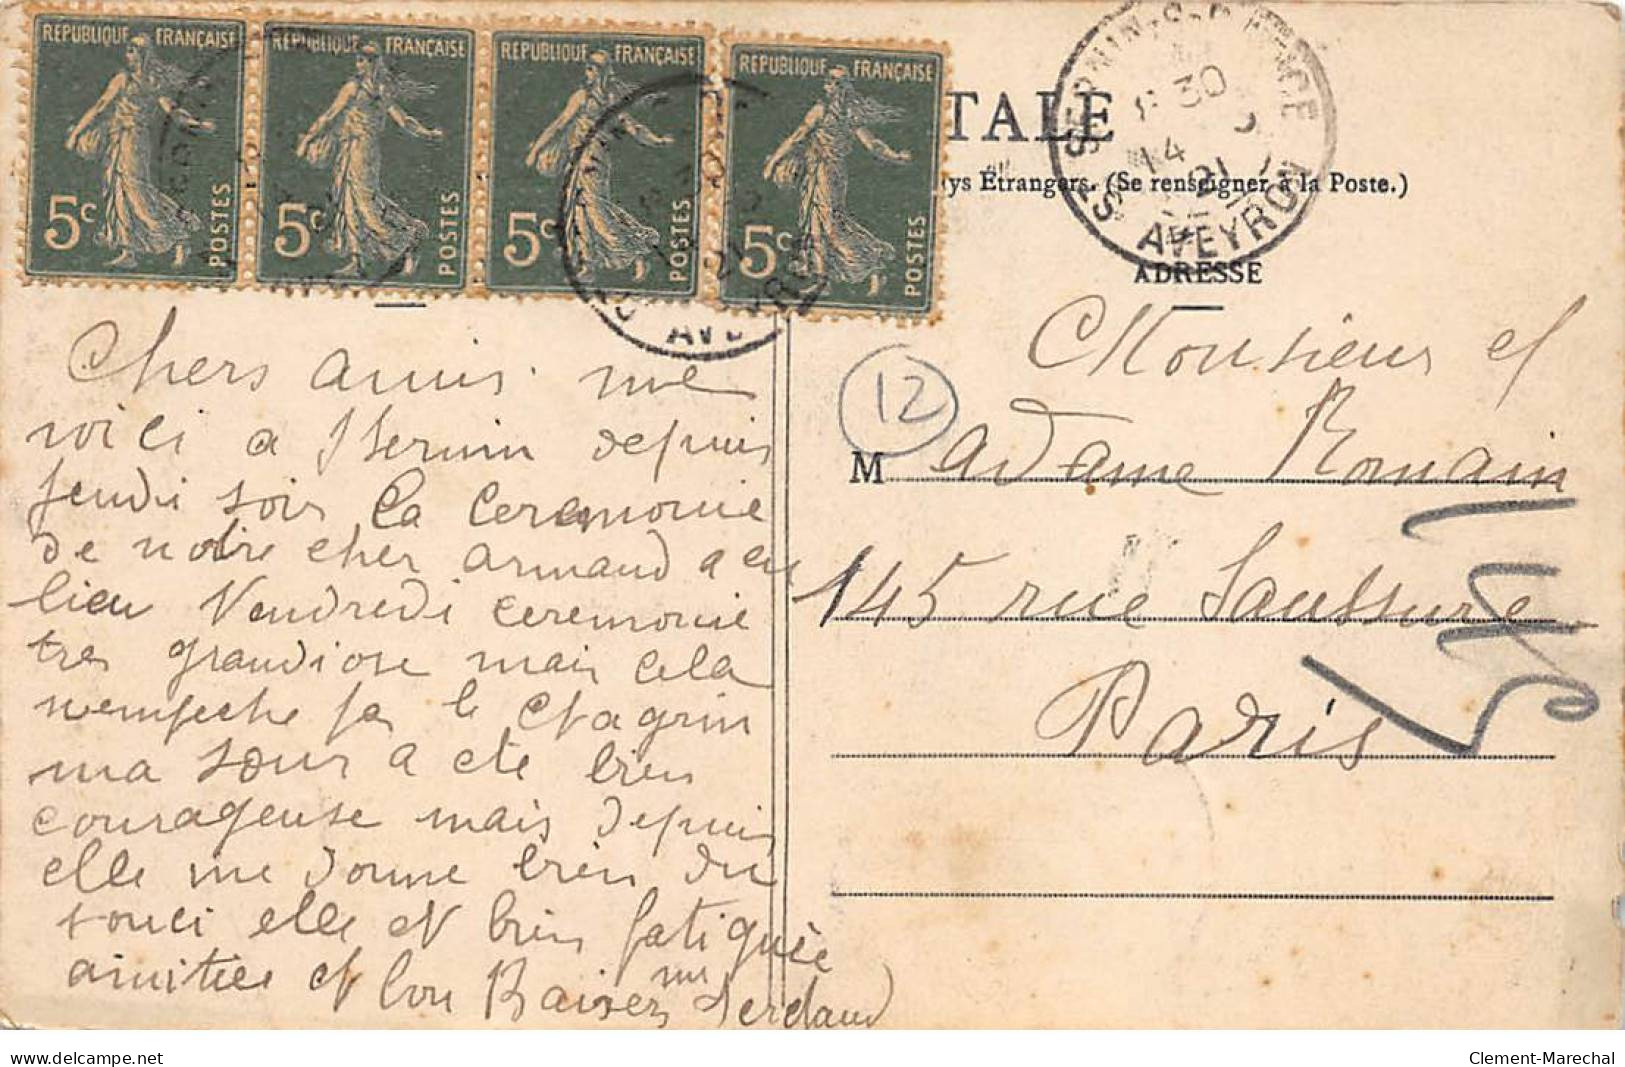 RÉPUBLIQUE FRANÇAISE 5c POSTES
RÉPUBLIQUE FRANÇAISE 5c POSTES
RÉPUBLIQUE FRANÇAISE 5c POSTES
RÉPUBLIQUE FRANÇAISE 5c POSTES
TALE
ys Étrangers. (Se renseigner à la Poste.)
AVEYRON
14
21
ADRESSE
Chers amis me
voici a St Sernin depuis
jeudi soir la ceremonie
de notre cher armand a eu
lieu Vendredi ceremonie
tres grandiose mais cela
nempeche pas le chagrin
ma sœur a ete bien
courageuse mais depuis
elle me donne bien du
souci elle et bien fatiguèe
amities et bon Baisers
12
Monsieur et
Madame Romain
145 rue Saussure
Paris
delcampe.net
Clement-Marechal